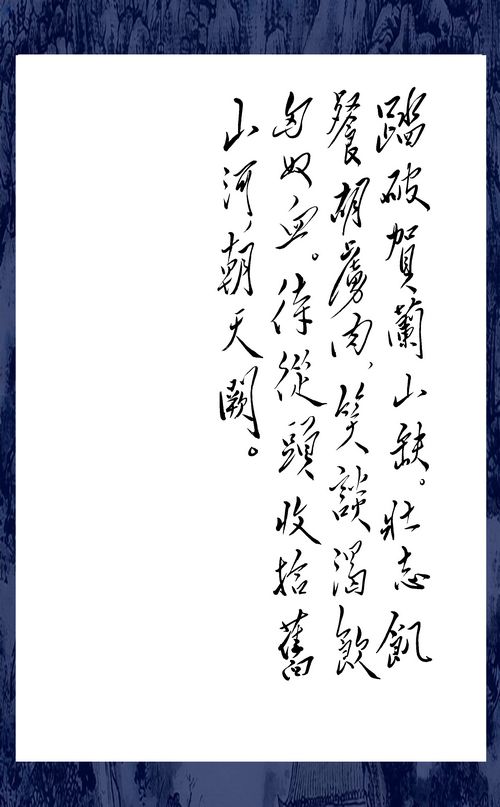 踏破賀蘭山缺。壯志飢
餐胡虜肉,笑談渴飲
匈奴血。待從頭收拾舊
山河,朝天闕。